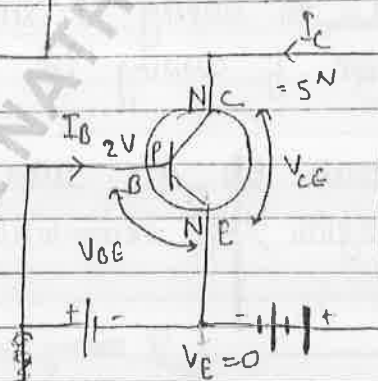 I_C
N C
= 5 N
I_B 2V P
B
V_CE
N E
V_BE
+ - - +
V_E = 0